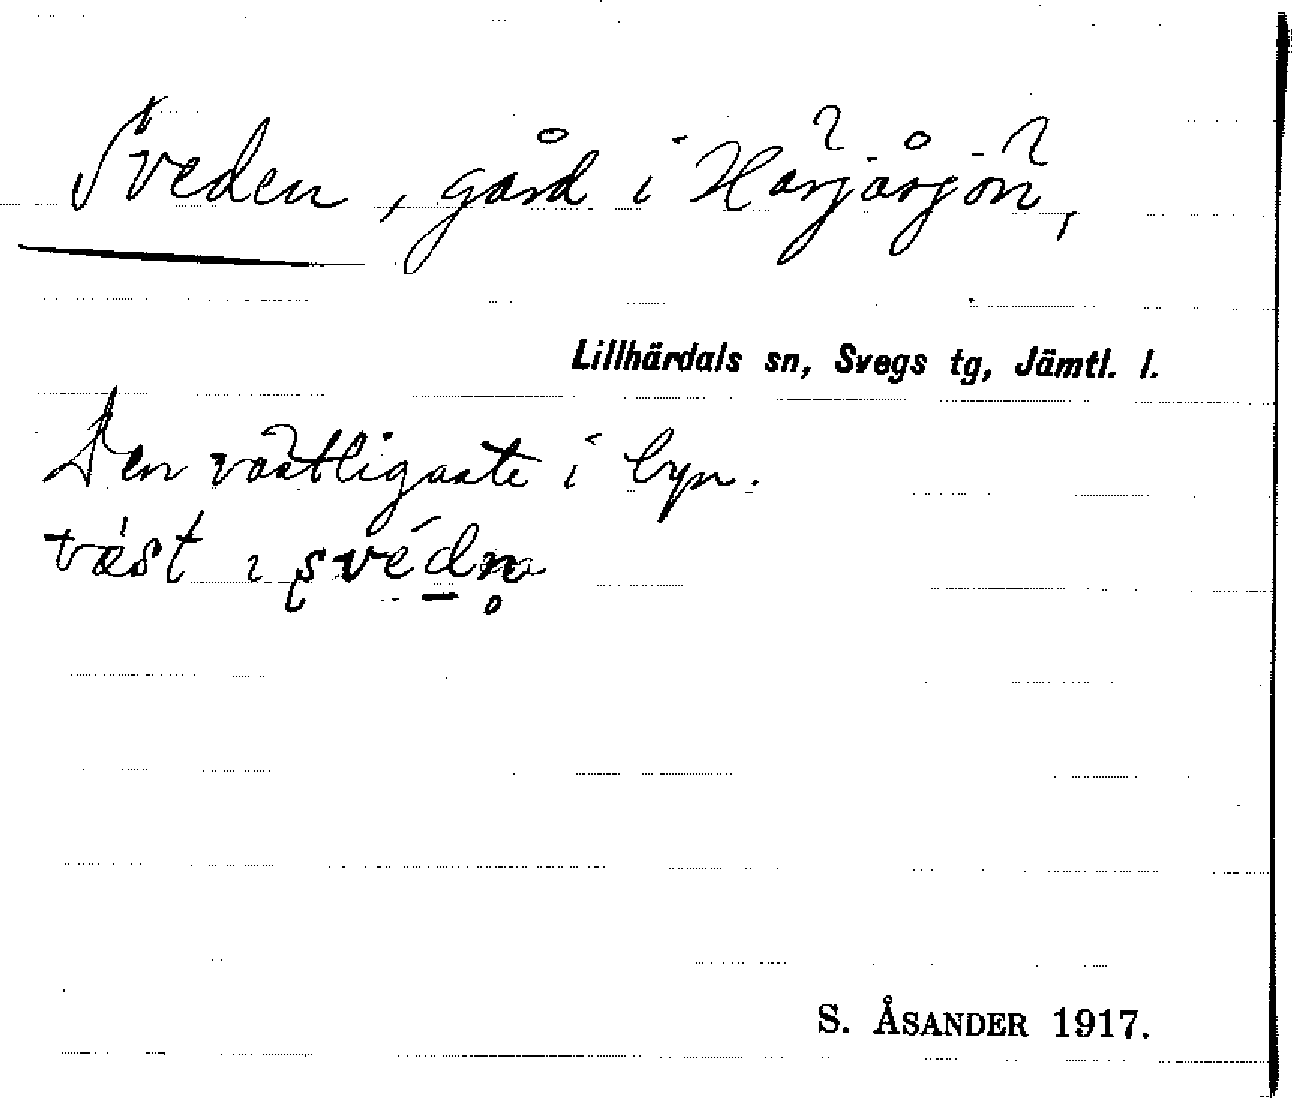 Sveden, gård i Härjåsjön,
Lillhärdals sn, Svegs tg, Jämtl. l.
Den västligaste i byn.
väst ı svédn̥
S. ÅSANDER 1917.